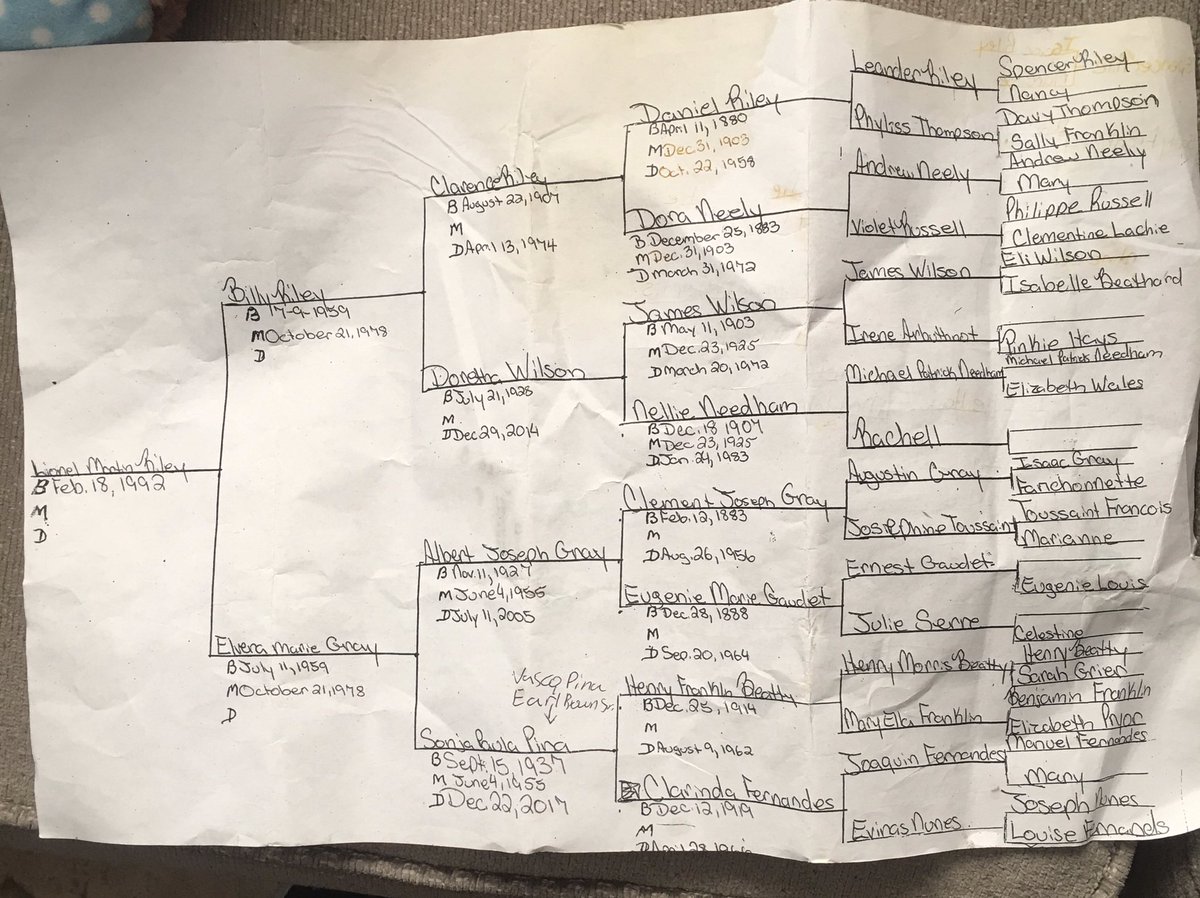 Lionel Martin Riley
B Feb. 18, 1992
M
D
Billy Riley
B 17-9-1959
M October 21, 1978
D
Elvera marie Gray
B July 11, 1959
M October 21, 1978
D
Clarence Riley
B August 22, 1907
M
D April 13, 1974
Doretha Wilson
B July 21, 1928
M
D Dec 29, 2014
Albert Joseph Gray
B Nov. 11, 1927
M June 4, 1955
D July 11, 2005
Vasco Pina
Earl
Sonja Paula Pina
B Sept. 15, 1937
M June 4, 1955
D Dec 22, 2017
Daniel Riley
B April 11, 1880
M Dec 31, 1903
D Oct. 22, 1958
Dora Neely
B December 25, 1883
M Dec. 31, 1903
D march 31, 1972
James Wilson
B May 11, 1903
M Dec. 23, 1925
D march 20, 1972
Nellie Needham
B Dec. 18 1907
M Dec 23, 1925
D Jan. 24, 1983
Clement Joseph Gray
B Feb. 12, 1883
M
D Aug. 26, 1956
Eugenie Marie Gaudet
B Dec 28, 1888
M
D Sep. 20, 1964
Henry Franklin Beatty
B Dec. 25, 1914
M
D August 9, 1962
Clarinda Fernandes
B Dec. 12, 1919
M
D April 28
Leander Riley
Phyliss Thompson
Andrew Neely
Violet Russell
James Wilson
Irene Arbuthnot
Michael Patrick Needham
Rachell
Augustin Gray
Josephine Toussaint
Ernest Gaudet
Julie Serre
Henry Morris Beatty
Mary Ella Franklin
Joaquin Fernandes
Eviras Nunes
Spencer Riley
Nancy
Davy Thompson
Sally Franklin
Andrew Neely
Mary
Philippe Russell
Clementine Lachie
Eli Wilson
Isabelle Beathard
Pinkie Hays
Michael Patrick Needham
Elizabeth Weiles
Isaac Gray
Fanchonnette
Toussaint Francois
Marianne
Eugenie Louis
Celestine
Henry Beatty
Sarah Grier
Benjamin Franklin
Elizabeth Pryor
Manuel Fernandes
Mary
Joseph Nunes
Louise Emanels